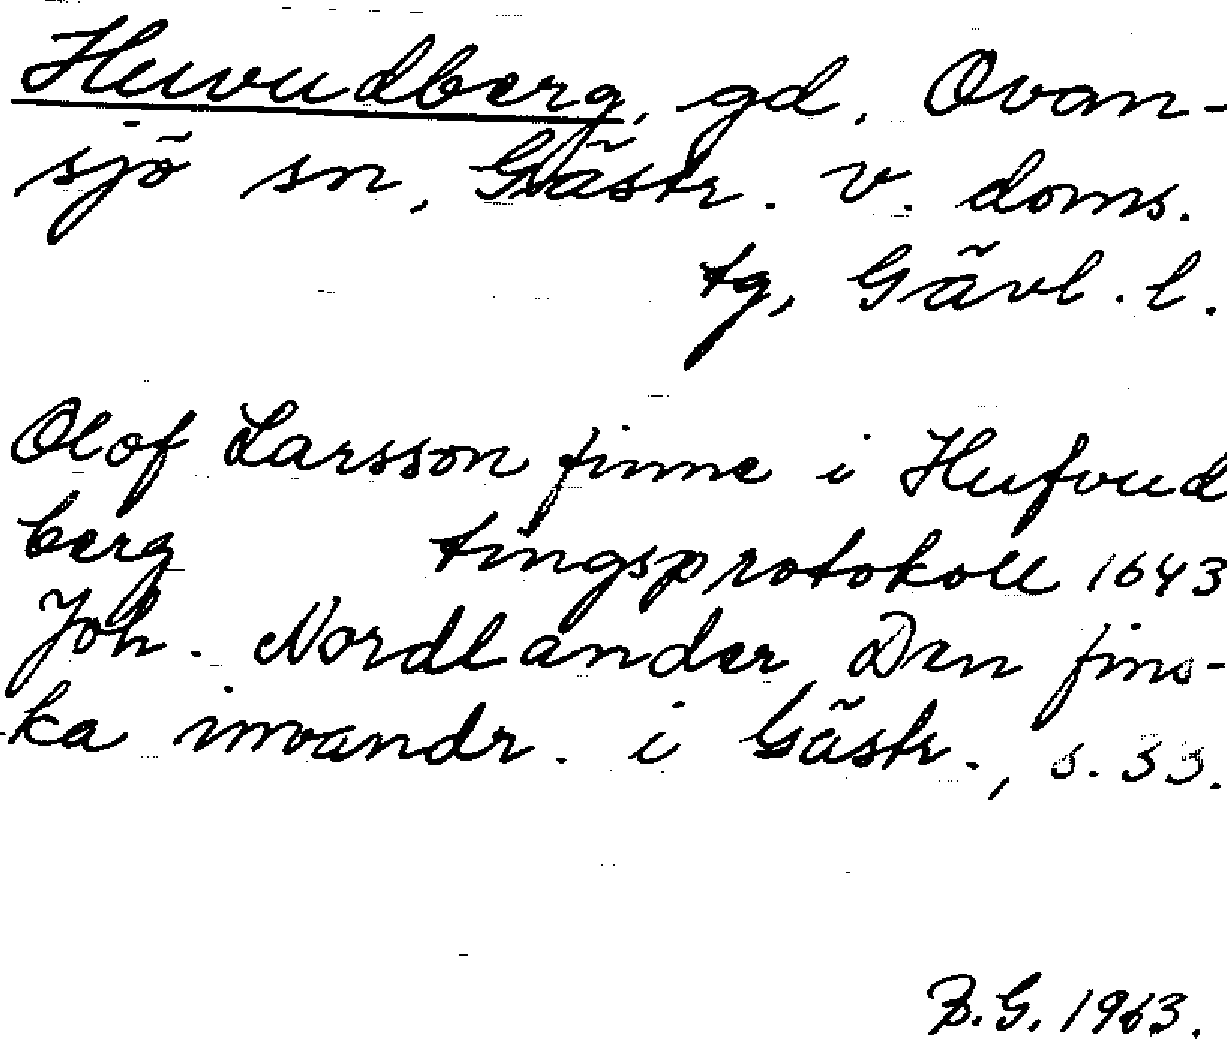 Huvudberg, gd, Ovan-
sjö sn, Gästr. v. doms.
tg, Gävl. l.
Olof Larsson finne i Hufvud
berg tingsprotokoll 1643
Joh. Nordlander, Den fins-
ka invandr. i Gästr., s. 33.
B.G. 1963.